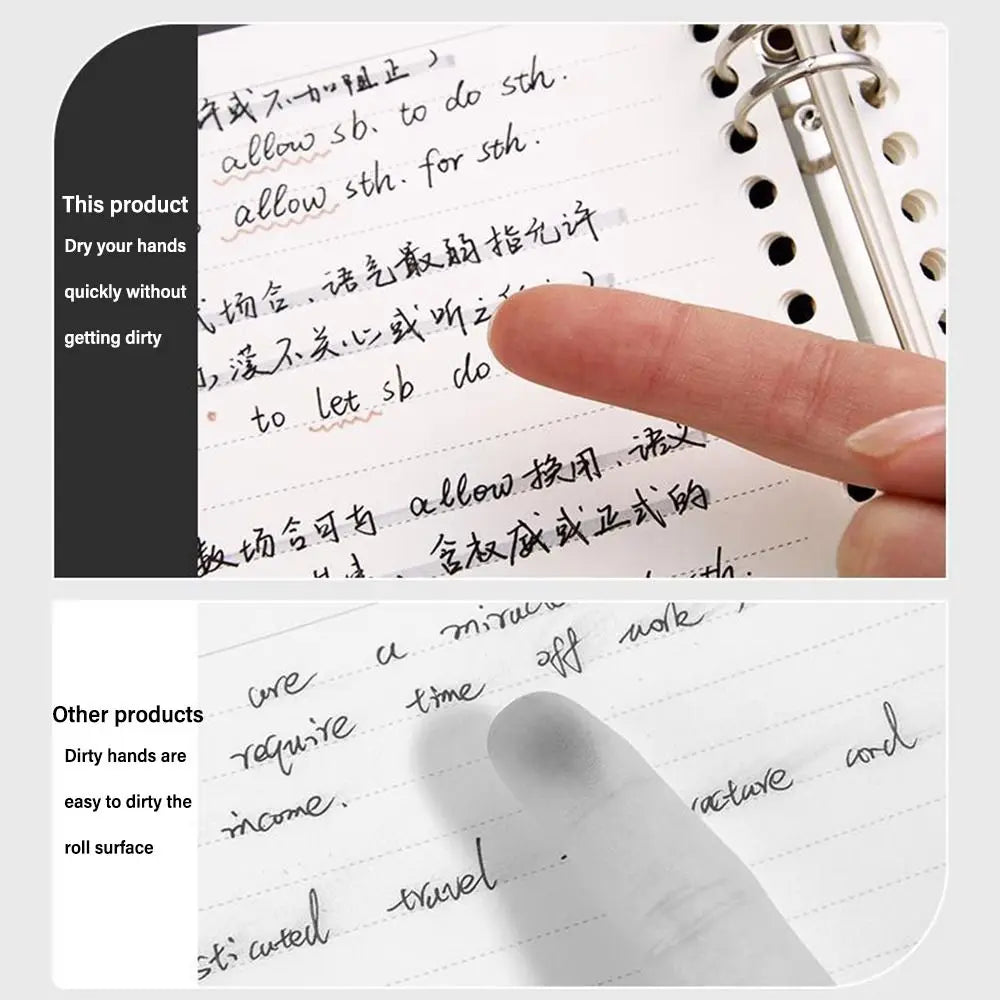 This product
Dry your hands
quickly without
getting dirty
许或不加阻止）
allow sb. to do sth.
allow sth. for sth.
式场合、语气最弱指允许
漠不关心或听之
to let sb do
数场合可与 allow 换用、语义
含权威或正式的
sth.
Other products
Dirty hands are
easy to dirty the
roll surface
are a
off work
require time
income.
cord
travel